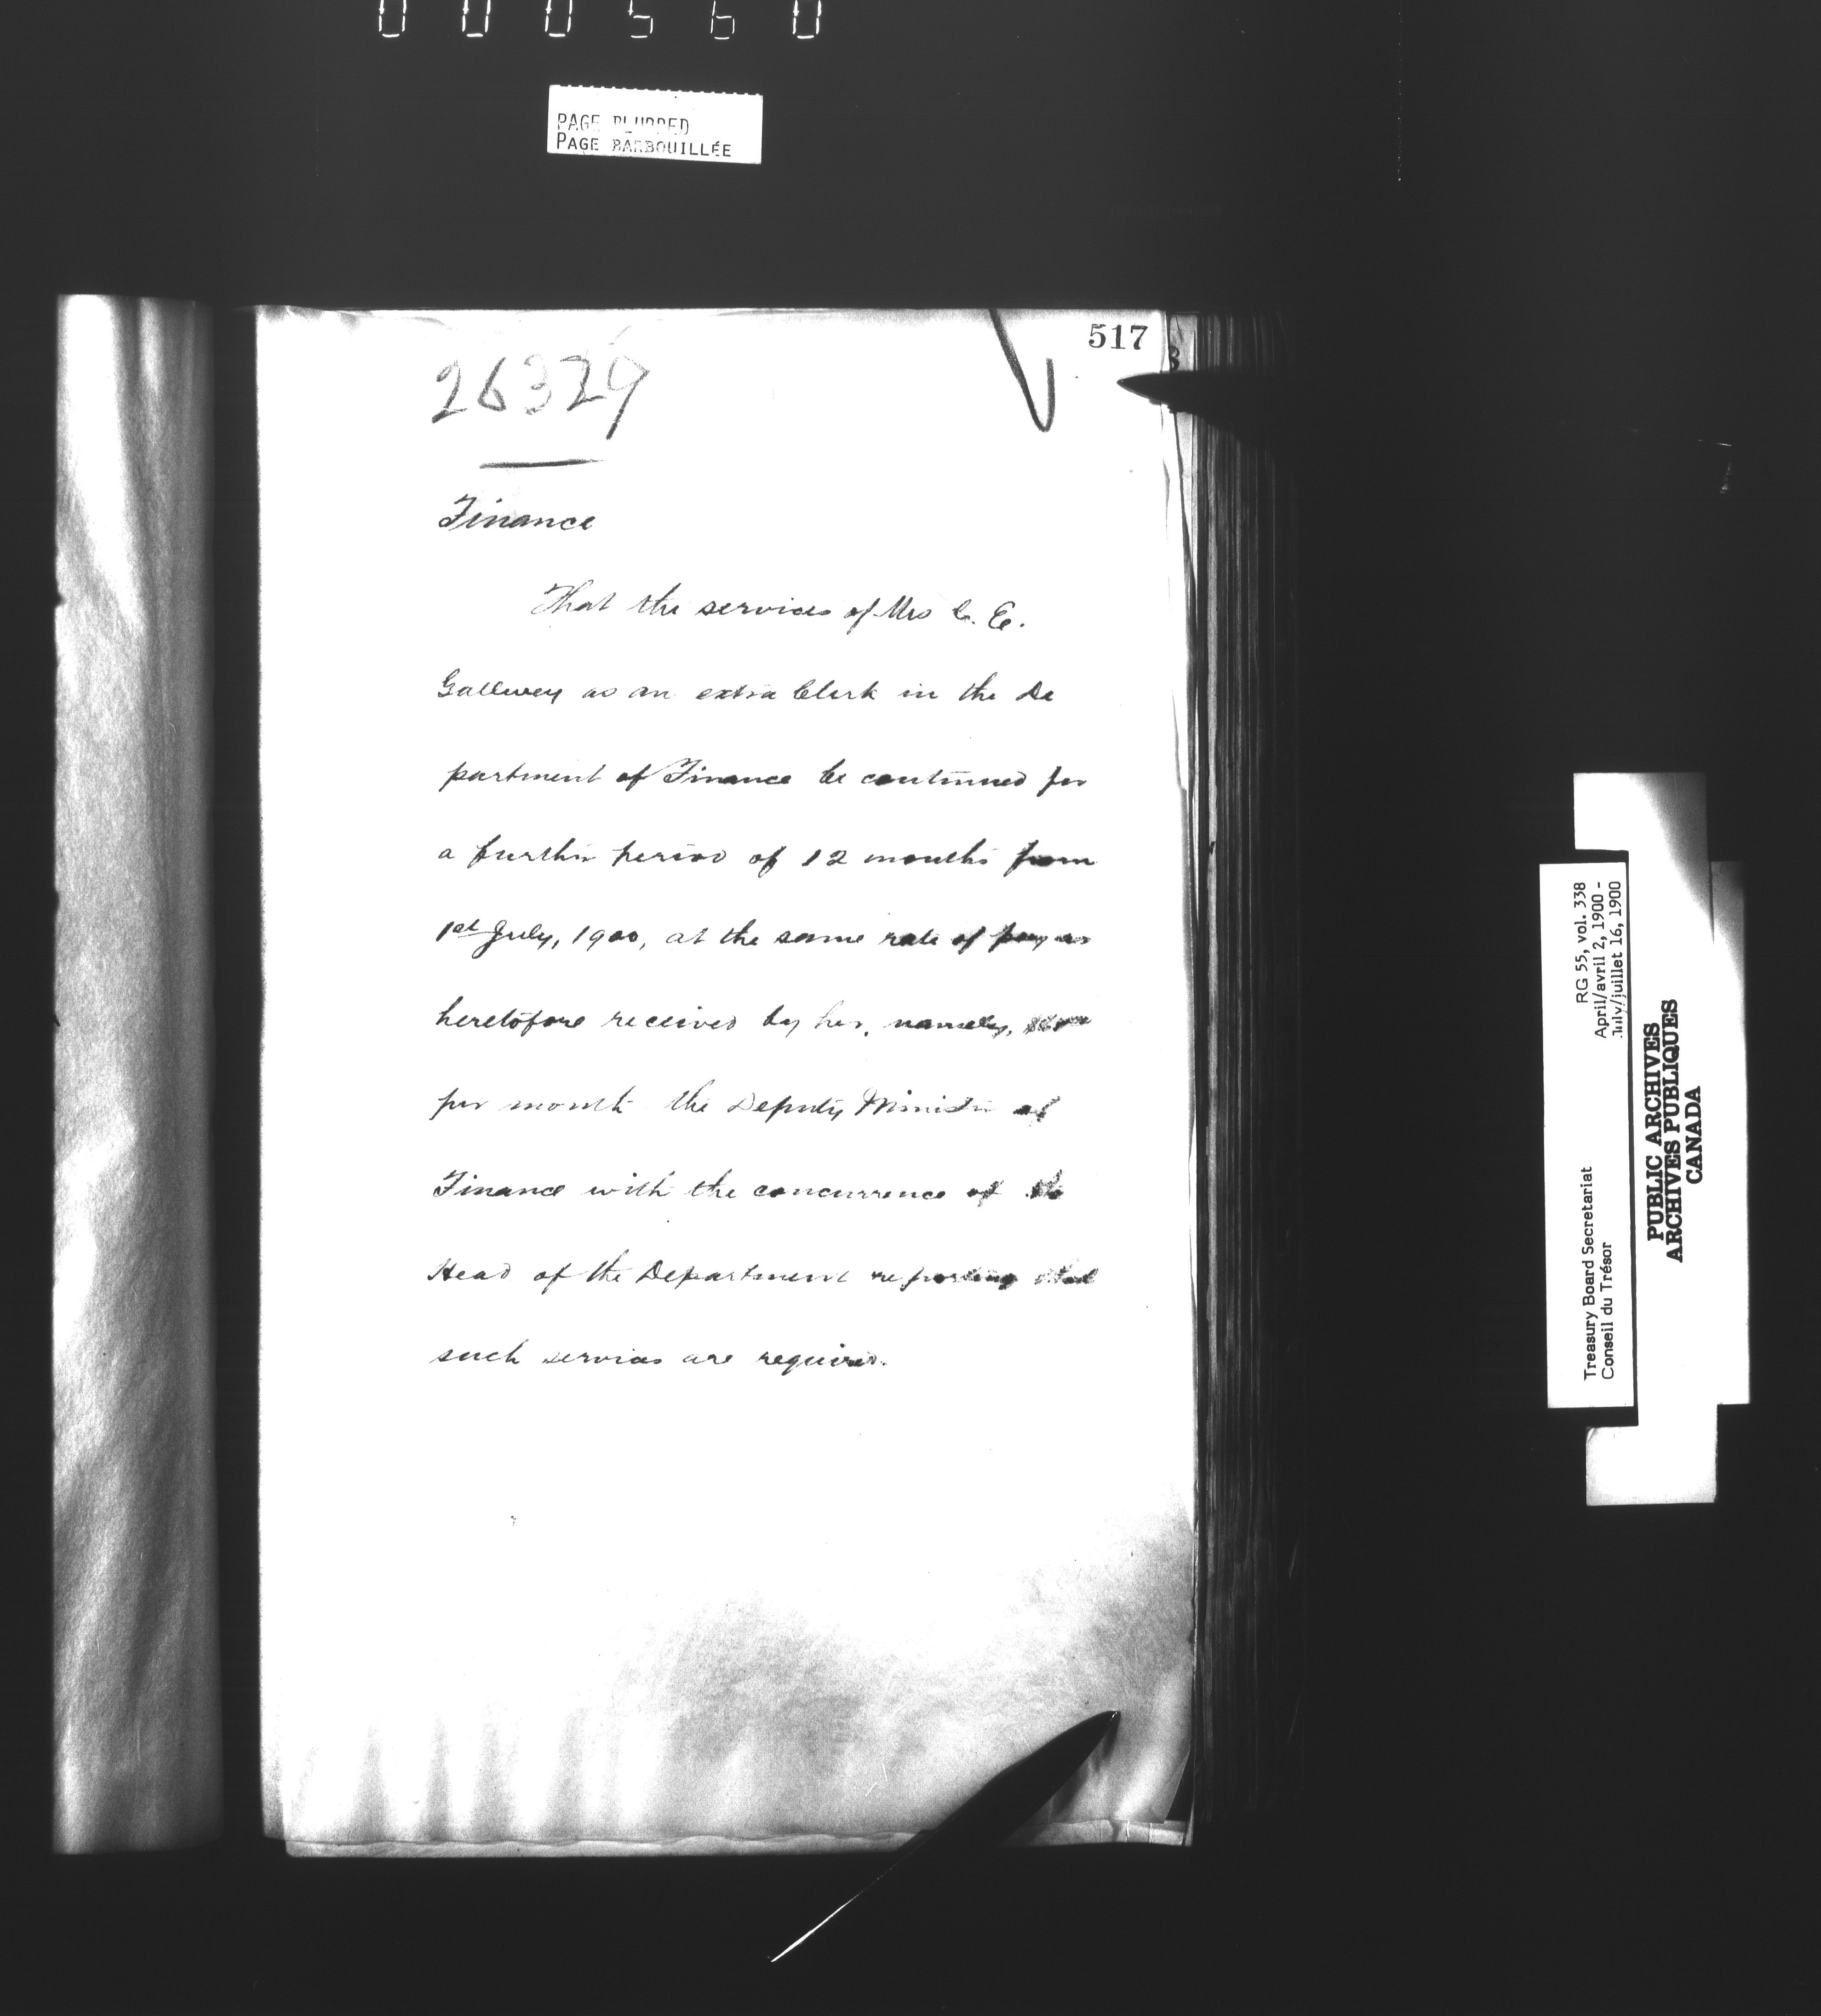 000560
PAGE BLURRED
PAGE BARBOUILLÉE
517
26329
Finance
That the services of Mrs C. E.
Gallwey as an extra Clerk in the De
partment of Finance be continued for
a further period of 12 months from
1st July, 1900, at the same rate of pay as
heretofore received by her, namely,
per month the Deputy Minister of
Finance with the concurrence of the
Head of the Department reporting that
such services are required.
RG 55, vol. 338
April/avril 2, 1900 -
July/juillet 16, 1900
Treasury Board Secretariat
Conseil du Trésor
PUBLIC ARCHIVES
ARCHIVES PUBLIQUES
CANADA